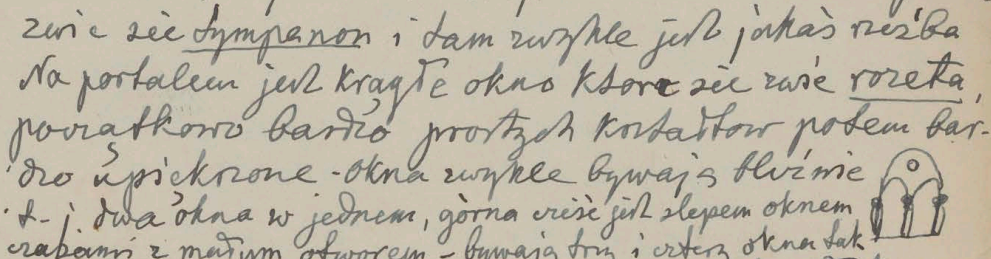 zwie się tympanon i tam zwykle jest jakaś rzeźba
Na portalem jest krągłe okno ktore się zwie rozeta,
początkowo bardzo prostych kształtow potem bar-
dzo upiekrzone - okna zwykle bywają bliźnie
t-j dwa okna w jednem, górna cześć jest slepem oknem
z małym otworem - bywają trzy i cztery okna tak